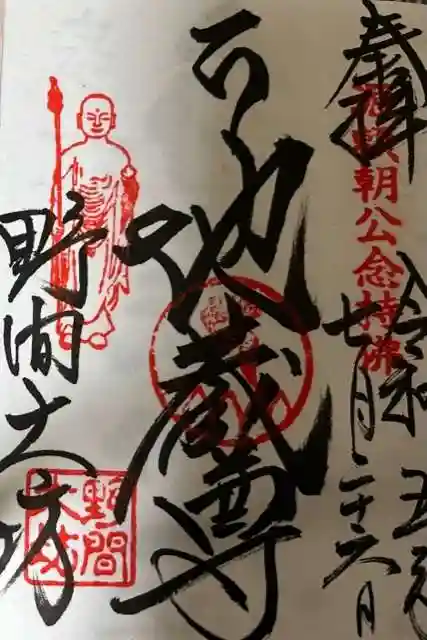 奉拝
源頼朝公念持佛
令和五年
七月二十六日
地蔵尊
野間大坊
野間大坊